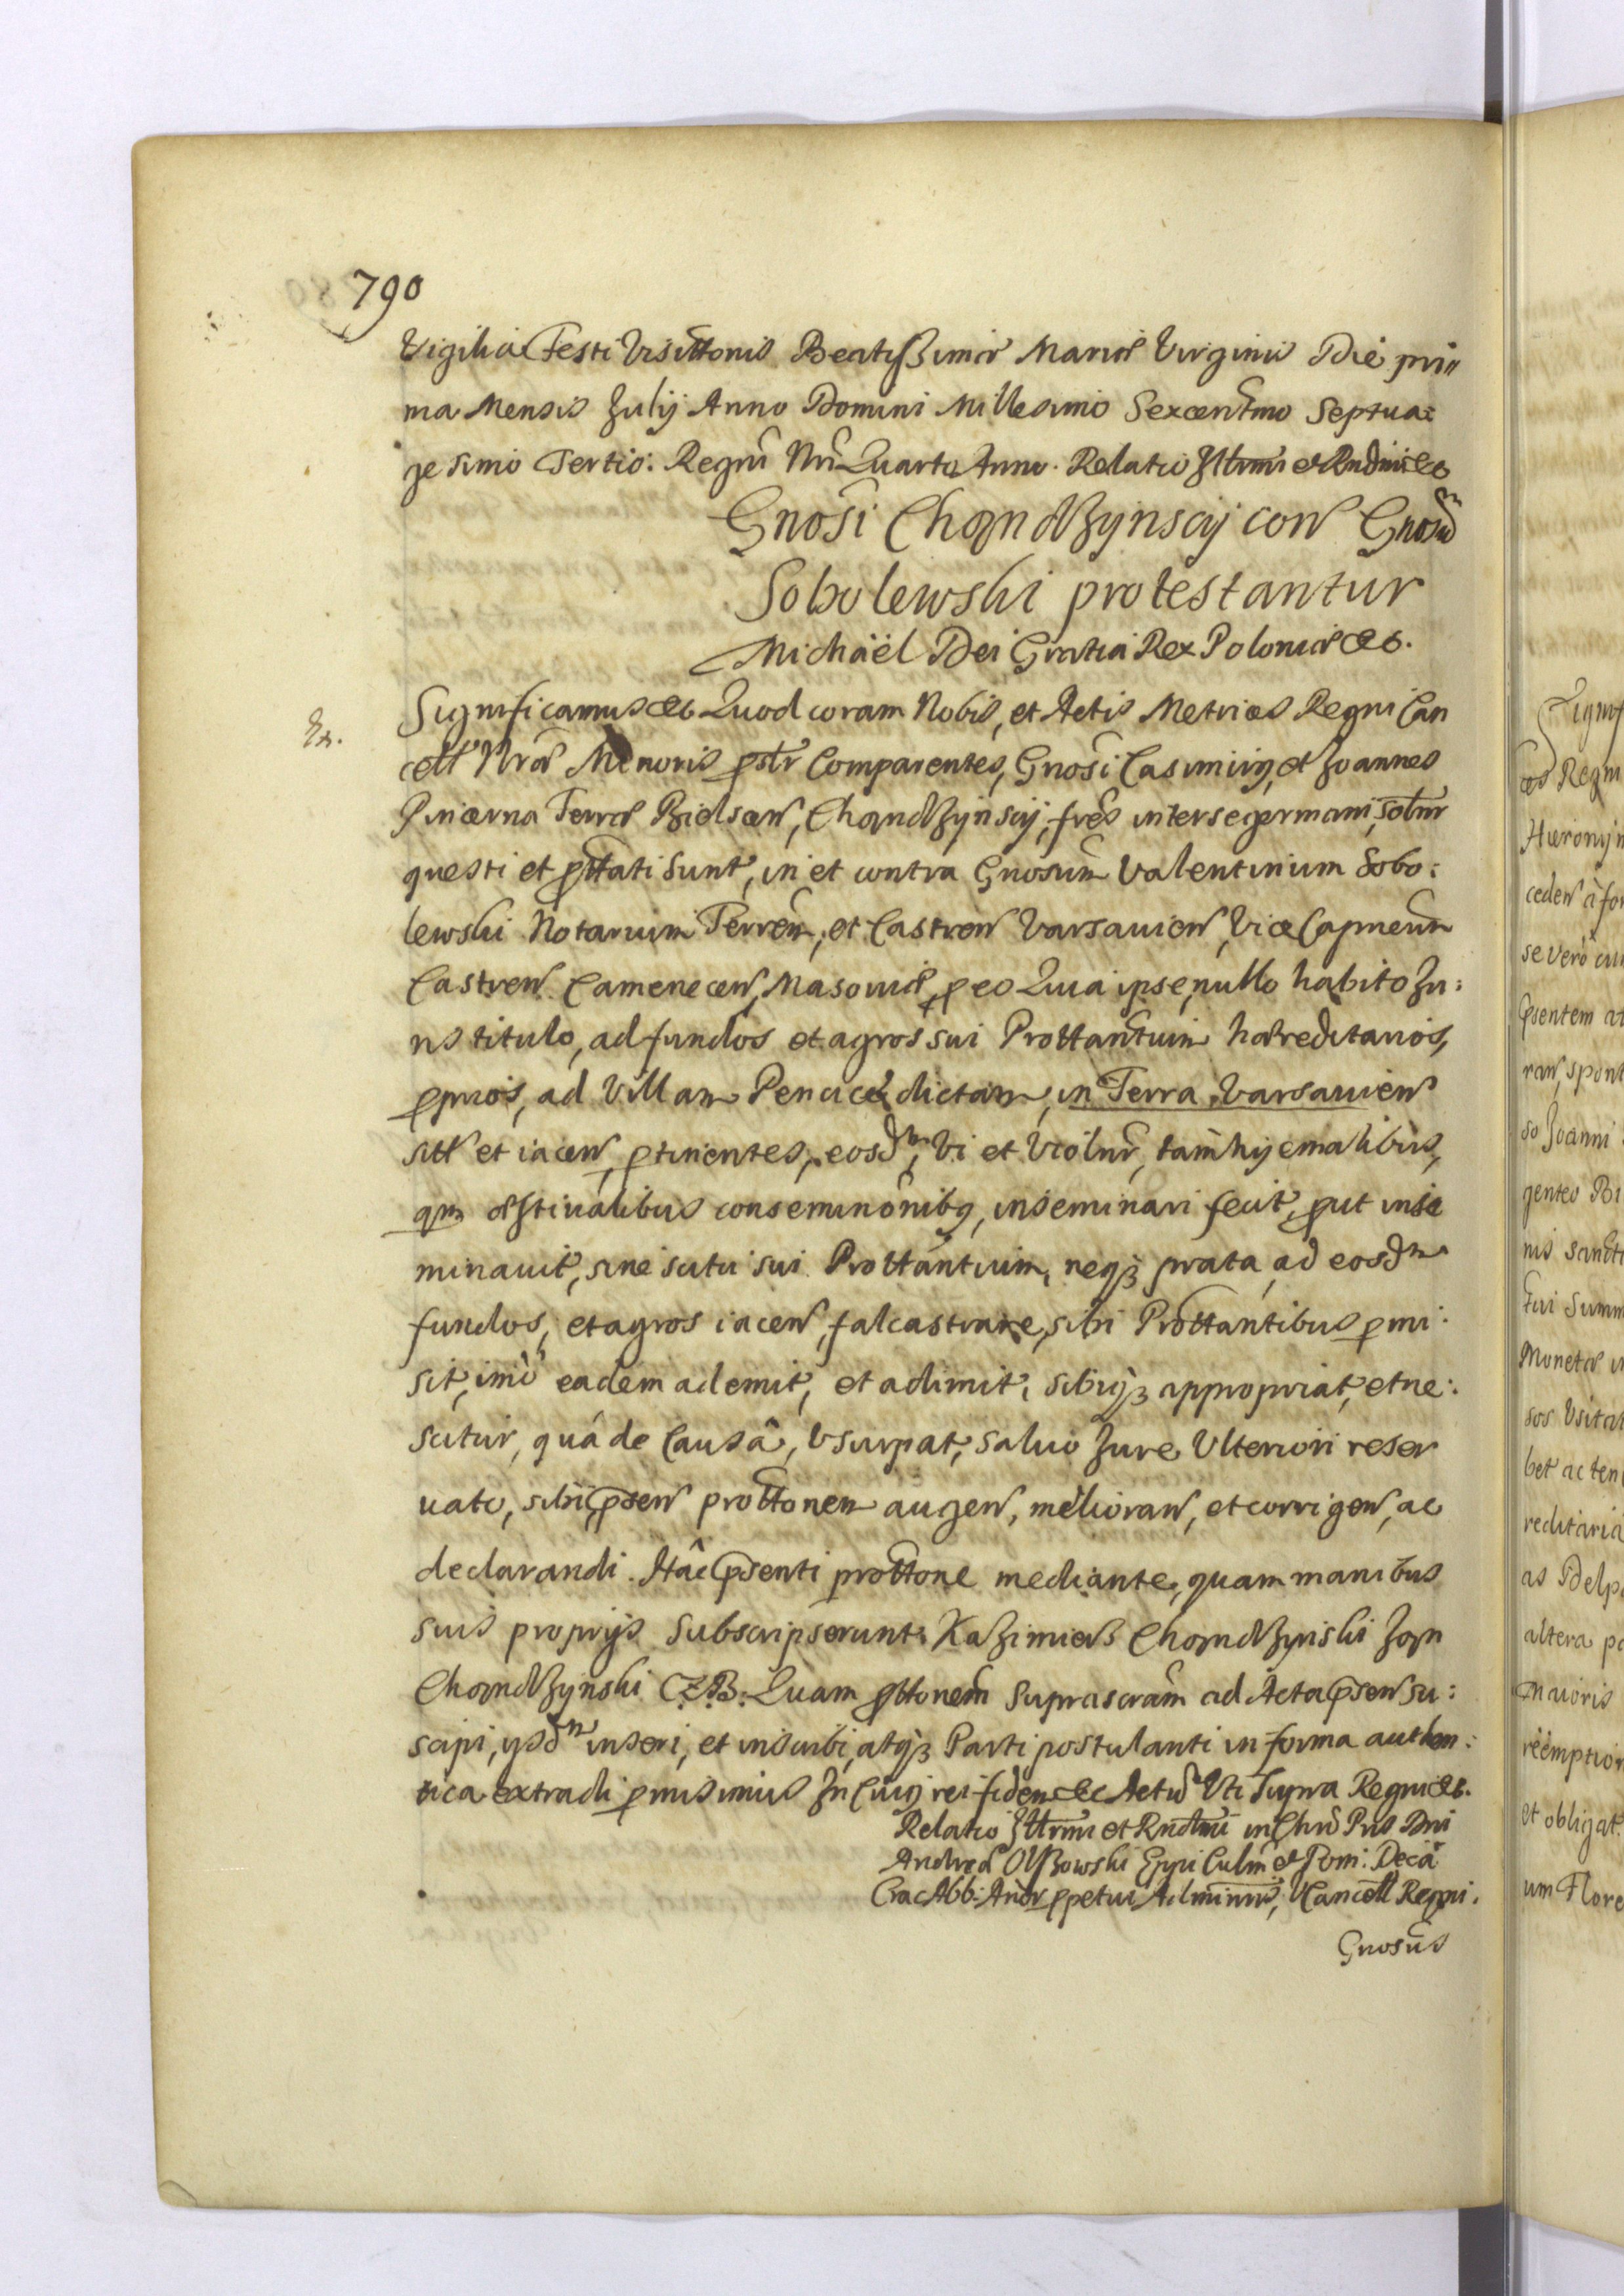 790
Vigilia Festi Visittonis Beatissimæ Mariæ Virginis Die pri„
ma Mensis Julij Anno Domini Millesimo Sexcentmo Septua:
gesimo Tertio: Regni Nri Quarto Anno. Relatio Illrmi et Rndmi &c
Gnosi Chądzynscij con Gnosum
Sobolewski protestantur
Michaël Dei Gratia Rex Poloniæ &c.
Significamus &c Quod coram Nobis, et Actis Metrices Regni Can
cell Nræ Menoris pstr Comparentes, Gnosi Casimirg, et Joannes
Pincerna Terræ Bielscen, Chądzynscij, fres inter se germani, soltr
questi et pttati sunt, in et contra Gnosum Valentinium Sobo:
lewski Notarium Terrem, et Castren Varsauien, Vice Capneum
Castren Camenecen, Masoviæ, p eo Quia ipse nullo habito Ju:
ris titulo, ad fundos et agros sui Prottantium hæreditarios,
pprios, ad Villam Pencice dictam, in Terra Varsavien
sitt et iacen, ptinentes, eosdm, Vi et Violnr, tam hyemalibus,
qm æstiualibus conseminonibg, inseminari fecit, put inse
minauit, sine scitu sui Prottantium, neqз prata ad eosdm
fundos, et agros iacen, falcastrare, sibi Prottantibus pmi:
sit, imo eadem ademit, et adimit, sibiqз appropriat, et ne:
scitur, quâ de Causâ, Vsurpat, saluo Jure Vlteriori reser
uato, sibi psen prottonem augen, mélioran, et corrigen, ac
declarandi. Hâc psenti prottone mediante, quam manibus
suis proprijs subscripserunt. Kazimierz Chądzynski Jan
Chądzynski C.Z.B. Quam pttonem suprascram ad Acta psen su:
scipi, ysdm inseri, et inscribi, atqз Parti postulanti in forma authen:
tica extradi pmisimus In Cuig rei fidem &c Actū Vti Supra Regni &c.
Relatio Illrmi et Rndmi in Chrō Pris Dni
Andreæ Olszowski Eppi Culm et Pom: Decā
Crac Abb: Andr ppetui Adminris, VCancell Regni.
Gnosūs